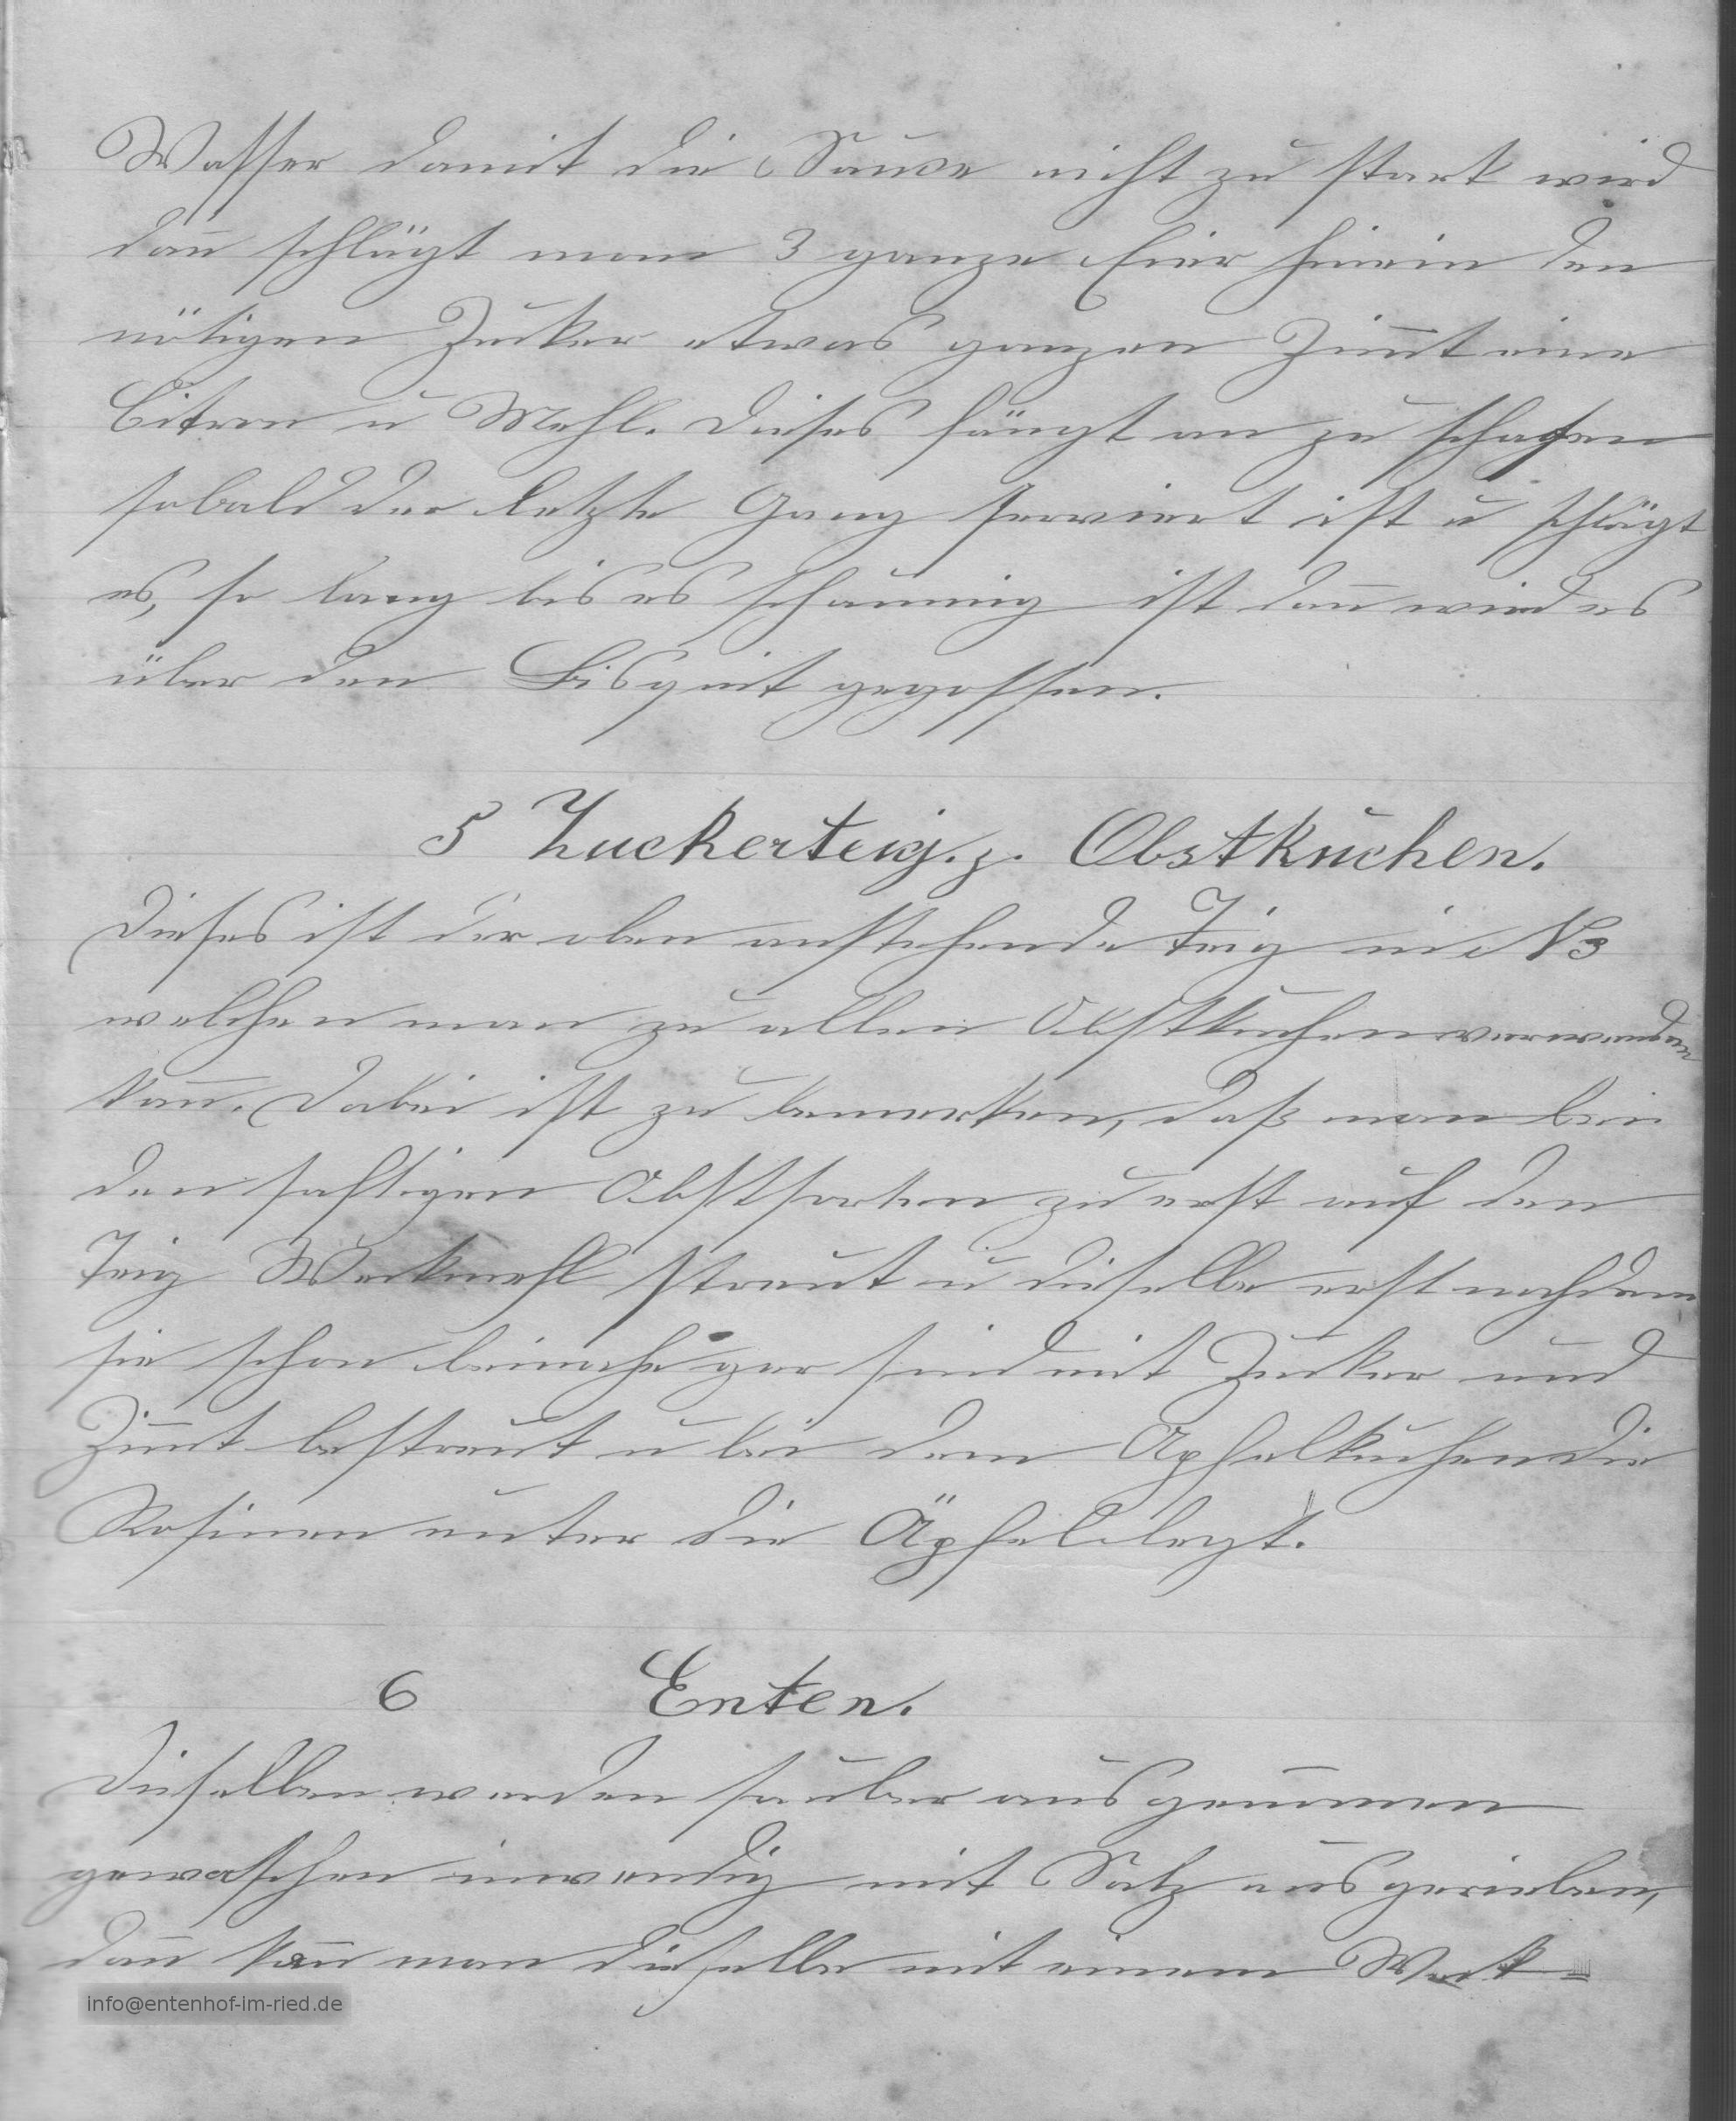 Wasser damit die Sauce nicht zu stark wird
dan̅ schlägt man 3 ganze Eier hinein den
nötigen Zucker etwas ganzen Zim̅t eine
Citron u Mehl. Dieses fängt an zu schaffen
sobald der letzte Gang serviert ist u schlägt
es, so lang bis es schaumig ist dan̅ wird es
über den Bisquit gegossen.
5 Zuckerteig. z. Obstkuchen.
Dieses ist der oben anstehende Teig in N 3
welchen man zu allen Obstkuchen verwenden
kan̅. Dabei ist zu bemerken, daß man bei
den saftigen Obstsorten zu erst auf den
Teig Weckmehl streut u dieselbe erst nachdem
sie schon beinahe gar sind mit Zucker und
Zim̅t bestreut u bei dem Apfelkuchen die
Rosinen unter die Äpfel legt.
6 Enten.
Dieselben werden sauber ausgenom̅en
gewaschen inwendig mit Salz ausgerieben,
dan̅ kan̅ man dieselbe mit einem Weck=
info@entenhof-im-ried.de